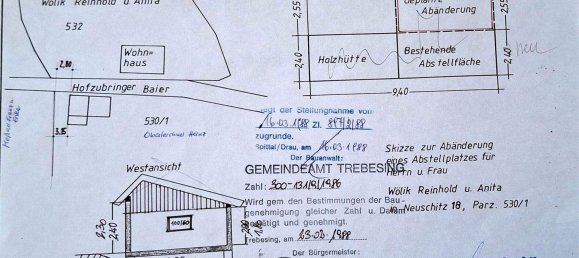 Wölik Reinhold u. Anita
532
Wohn-
haus
2,55
Geplante
Abänderung
2,55
Holzhütte
Bestehende
Abstellfläche
2,40
2,40
9,40
neu
2,80
Hofzubringer Baier
3,15
530/1
liegt der Stellungnahme vom
16.03.1988 Zl. 847/2/88
zugrunde.
Spittal/Drau, am 16.03.1988
Der Bauanwalt:
GEMEINDEAMT TREBESING
Zahl: 300-131/9/1986
Wird gem den Bestimmungen der Bau-
genehmigung gleicher Zahl u. Datum
bestätigt und genehmigt.
Trebesing, am 23.03.1988
Der Bürgermeister:
Skizze zur Abänderung
eines Abstellplatzes für
Herrn u. Frau
Wölik Reinhold u. Anita
in Neuschitz 18, Parz. 530/1
Westansicht
2,30
2,40
100/60
2,00